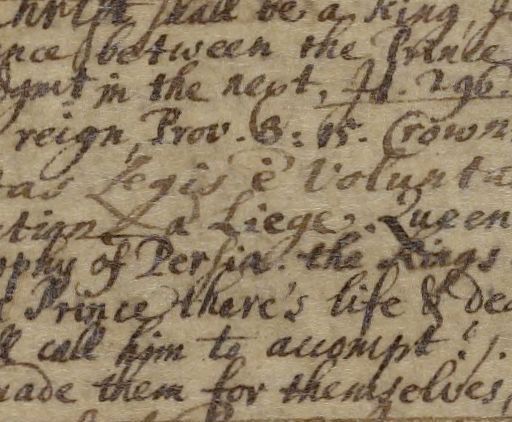 Christ shall be a King,
nce between the Prince
in the next, Is. 296.
reign, Prov. 8: 15. Crown
as Legis è Volunta
tion & a Liege. Queen
phy of Persia. the Kings
Prince, there's life & dea
ll call him to accompt!
made them for themselves,